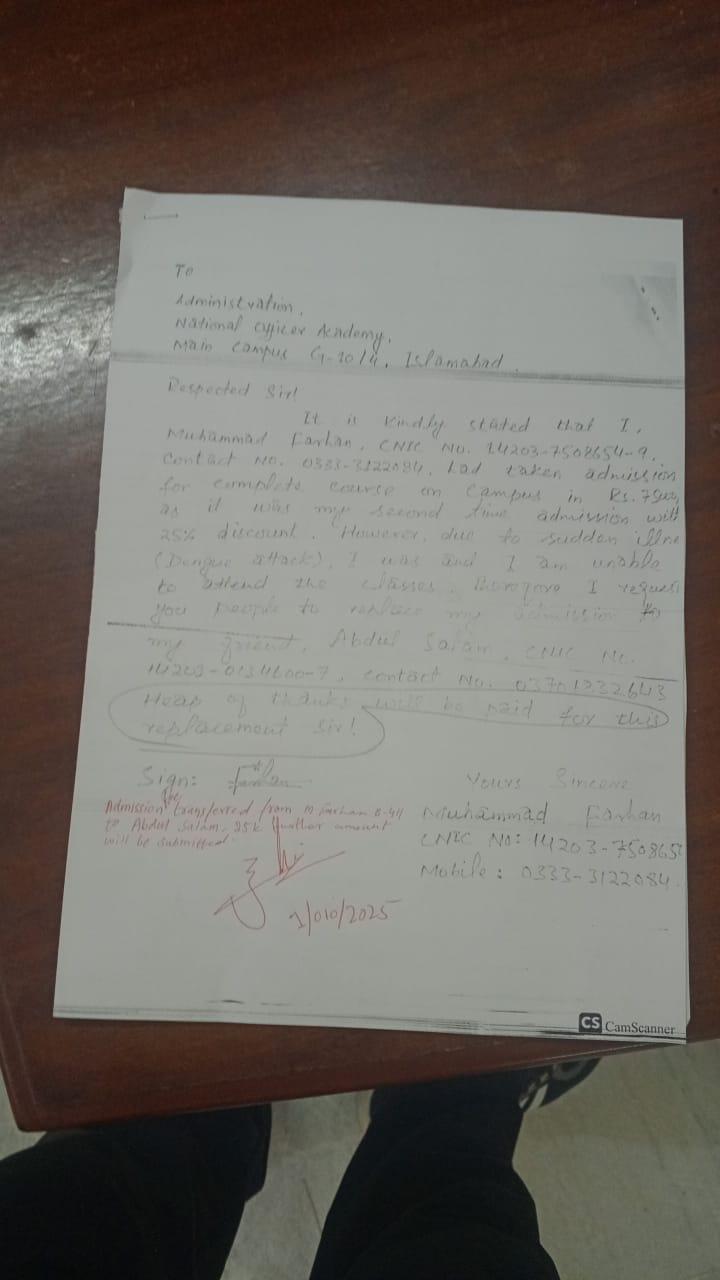 To
Administration,
National Officer Academy,
Main Campus G-10/4, Islamabad.
Respected Sir!
It is kindly stated that I,
Muhammad Farhan, CNIC No. 14203-7508654-9,
Contact No. 0333-3122084, had taken admission
for complete course on campus in Rs.
as it was my second time admission with
25% discount. However, due to sudden illne
(Dengue attack), I was and I am unable
to attend the classes. Therefore I request
you people to replace my admission to
my friend, Abdul Salam, CNIC No.
contact No. 03701232643
Heap of thanks will be paid for this
replacement Sir!
Sign: Farhan
Yours Sincere
Muhammad Farhan
CNIC No: 14203-750865
Mobile: 0333-3122084.
Admission transferred from M Farhan
to Abdul Salam. 25k further amount
will be submitted.
1/010/2025
CS CamScanner